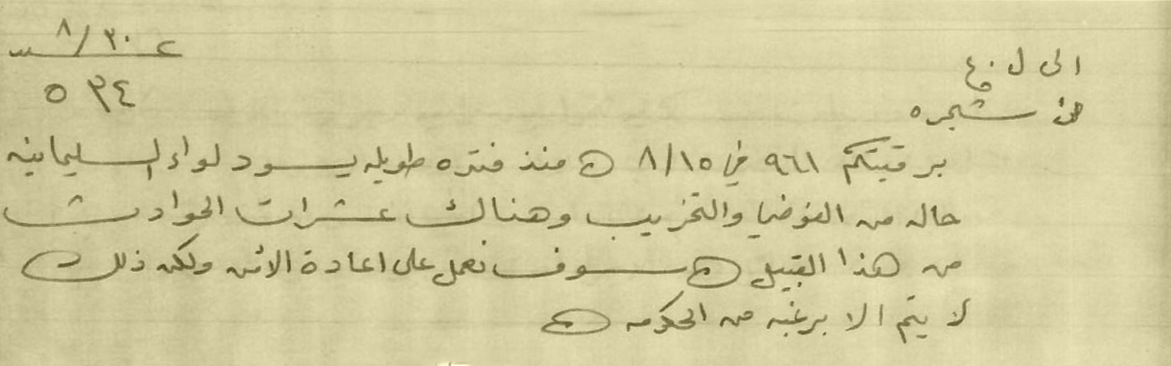 ٨/٣٠
٥٣٤
الى ل . ع
من شجره
برقيتكم ٩٦١ في ٨/١٥ منذ فتره طويله يسود لواء السليمانيه
حاله من الفوضى والتخريب وهناك عشرات الحوادث
من هذا القبيل سوف نعمل على اعادة الأمن ولكن ذلك
لا يتم الا برغبه من الحكومه